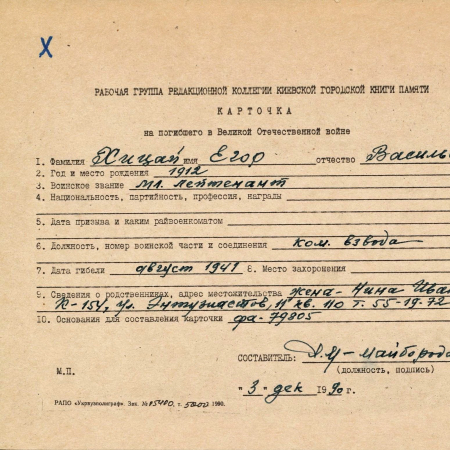 X
РАБОЧАЯ ГРУППА РЕДАКЦИОННОЙ КОЛЛЕГИИ КИЕВСКОЙ ГОРОДСКОЙ КНИГИ ПАМЯТИ
КАРТОЧКА
на погибшего в Великой Отечественной войне
1. Фамилия Хицай имя Егор отчество Василь
2. Год и место рождения 1912
3. Воинское звание мл. лейтенант
4. Национальность, партийность, профессия, награды
5. Дата призыва и каким райвоенкоматом
6. Должность, номер воинской части и соединения ком. взвода
7. Дата гибели август 1941 8. Место захоронения
9. Сведения о родственниках, адрес местожительства жена - Нина Иван
К-154, ул. Энтузиастов, кв. 110 т. 55-19-72
10. Основания для составления карточки фа-79805
СОСТАВИТЕЛЬ: Майборода
(должность, подпись)
М.П.
"3" дек 1990 г.
РАПО «Укрвузполиграф» Зак. № 05400, т. 5000 1990.